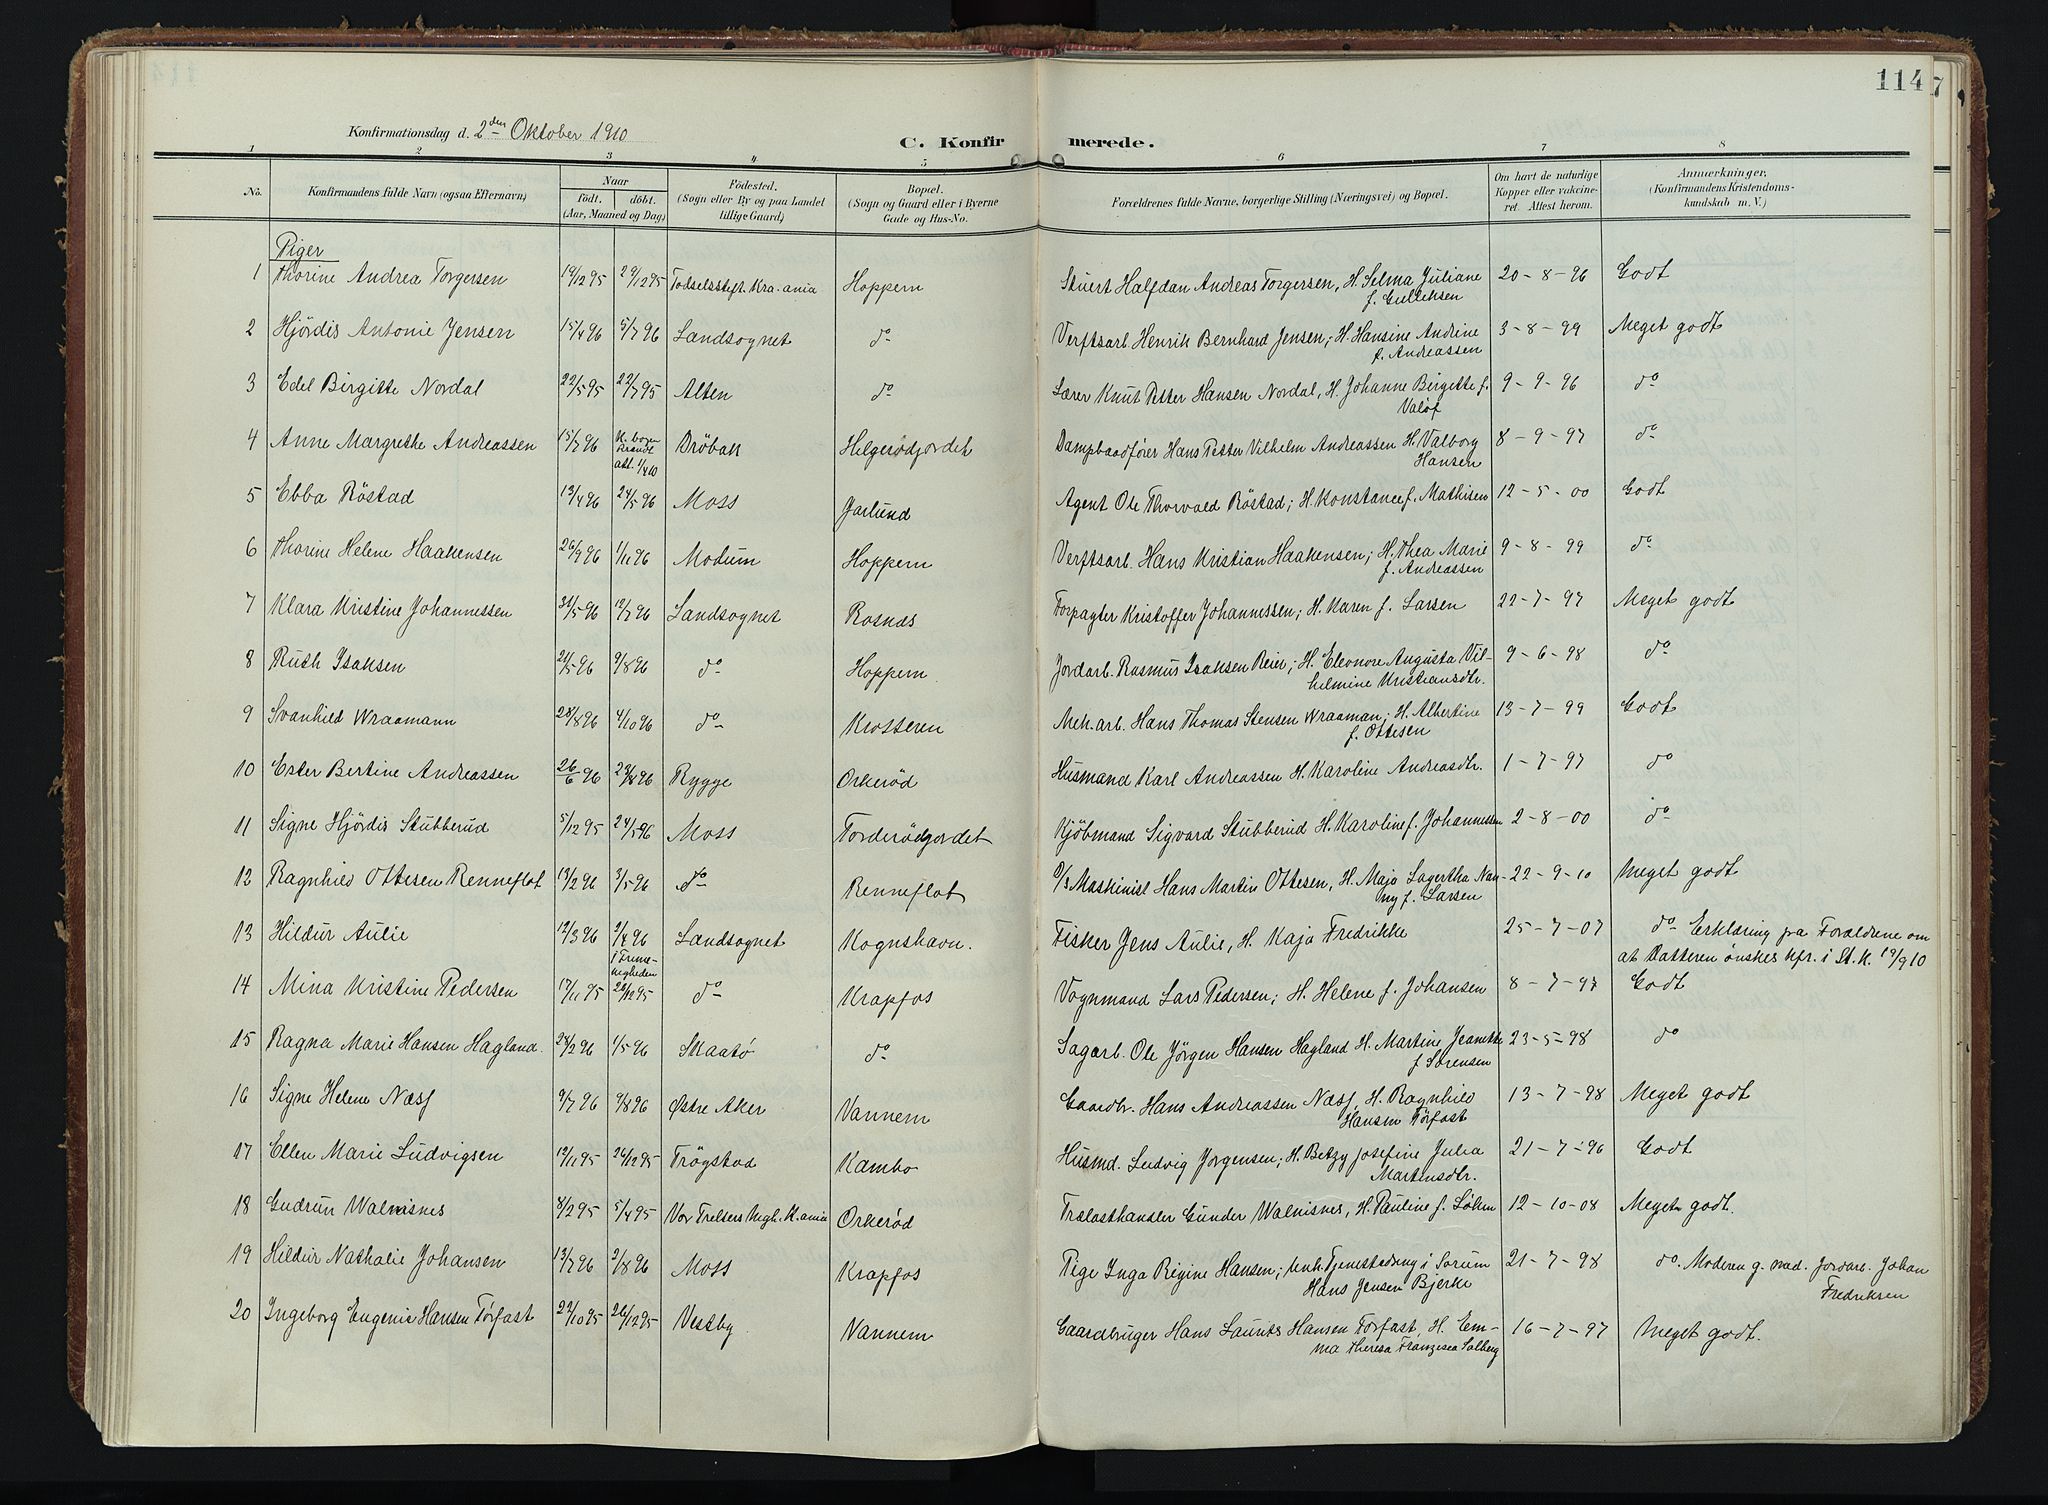 114
7
Konfirmationsdag d. 2den Oktober 1910
C. Konfirmerede.
1 2 3 4 5 6 7 8
No.
Konfirmandens fulde Navn (ogsaa Efternavn)
Naar
født. døbt.
(Aar, Maaned og Dag)
Fødested.
(Sogn eller By og paa Landet
tillige Gaard)
Bopæl.
(Sogn og Gaard eller i Byerne
Gade og Hus-No.
Forældrenes fulde Navne, borgerlige Stilling (Næringsvei) og Bopæl.
Om havt de naturlige
Kopper eller vakcine-
ret. Attest herom.
Anmerkninger,
(Konfirmandens Kristendoms-
kundskab m. V.)
Piger
1 Thorine Andrea Torgersen 19/12 95 29/12 95 Fødselsstift. Kra.ania Hoppern Stuert Halfdan Andreas Torgersen, H. Selma Juliane 20-8-96 Godt
f. Gulliksen
2 Hjördis Antonie Jensen 15/4 96 5/7 96 Landsognet do Verftsarb. Henrik Bernhard Jensen; H. Hansine Andrine 3-8-99 Meget godt
f. Andreassen
3 Edel Birgitte Nordal 22/5 95 22/7 95 Alten do Lærer Knut Petter Hansen Nordal, H. Johanne Birgitte f. 9-9-96 do
Valöf
4 Anne Margrethe Andreassen 15/7 96 K. bog Dröbak Helgerødjordet Dampbaadfører Hans Petter Vilhelm Andreassen H. Valborg 8-9-97 do
Brandt
att. 1/4 10 Hansen
5 Ebba Röstad 13/4 96 24/5 96 Moss Garlund Agent Ole Thorvald Röstad; H. Konstance f. Mathisen 12-5-00 Godt
6 Thorine Helene Haakensen 26/9 96 1/11 96 Modum Hoppern Verftsarb. Hans Kristian Haakensen; H. Thea Marie 9-8-99 do
f. Andreassen
7 Klara Kristine Johannessen 31/5 96 12/7 96 Landsognet Rosnæs Forpagter Kristoffer Johannessen; H. Karen f. Larsen 22-7-97 Meget godt
8 Ruth Isaksen 21/5 96 9/8 96 do Hoppern Jordarb. Rasmus Isaksen Reier; H. Eleonore Augusta Vil- 9-6-98 do
helmine Kristiansdtr.
9 Svanhild Wraamann 28/8 96 4/10 96 do Krosseren Mek.arb. Hans Thomas Stensen Wraaman; H. Albertine 13-7-99 Godt
f. Ottesen
10 Ester Bertine Andreassen 26/6 96 29/8 96 Rygge Orkerød Husmand Karl Andreassen H. Karoline Andreasdtr. 1-7-97 do
11 Signe Hjördis Stubberud 5/12 95 24/5 96 Moss Torderødjordet Kjöbmand Sigvard Stubberud H. Karoline f. Johannessen 2-8-00 do
12 Ragnhild Ottesen Renneflot 13/2 96 3/5 96 do Renneflot D/S Maskinist Hans Martin Ottesen, H. Maja Lagertha Nan- 22-9-10 Meget godt
ny f. Larsen
13 Hildur Aulie 12/3 96 2/4 96 Landsognet Kognshavn. Fisker Jens Aulie, H. Kaja Fredrikke 25-7-07 do Erklæring fra Forældrene om
i Frime-
nigheden at Datteren ønskes kfr. i St. K. 19/9 10
14 Mina Kristine Pedersen 17/11 95 22/12 95 do Krapfos Vognmand Lars Pedersen; H. Helene f. Johansen 8-7-97 Godt
15 Ragna Marie Hansen Hagland. 24/2 96 1/5 96 Skaatö do Sagarb. Ole Jörgen Hansen Hagland H. Martine Jeanette 23-5-98 do
f Sörensen
16 Signe Helene Næss 9/7 96 9/8 96 Østre Aker Vannem Gaardbr. Hans Andreassen Næss H. Ragnhild 13-7-98 Meget godt
Hansen Torfast
17 Ellen Marie Ludvigsen 12/11 95 26/12 95 Trögstad Kambo Husmd. Ludvig Jorgensen; H. Betzy Josefine Julia 21-7-96 Godt
Martinsdtr.
18 Gudrun Walnisnes 8/2 95 5/4 95 Vor Frelsers Mgh. K.ania Orkerød Trælasthandler Gunder Walnisnes, H. Pauline f. Löken 12-10-08 Meget godt.
19 Hildur Nathalie Johansen 13/7 96 2/8 96 Moss Krapfos Pige Inga Regine Hansen; Unk. Tjenestedreng i Sörum 21-7-98 do. Moderen g. med. Jordarb. Johan
Hans Jensen Bjerke Fredriksen
20 Ingeborg Eugenie Hansen Torfast 22/10 95 26/12 95 Vestby Vannem Gaardbruger Hans Laurits Hansen Torfast, H. Em- 16-7-97 Meget godt.
ma Theresa Franzisca Solberg